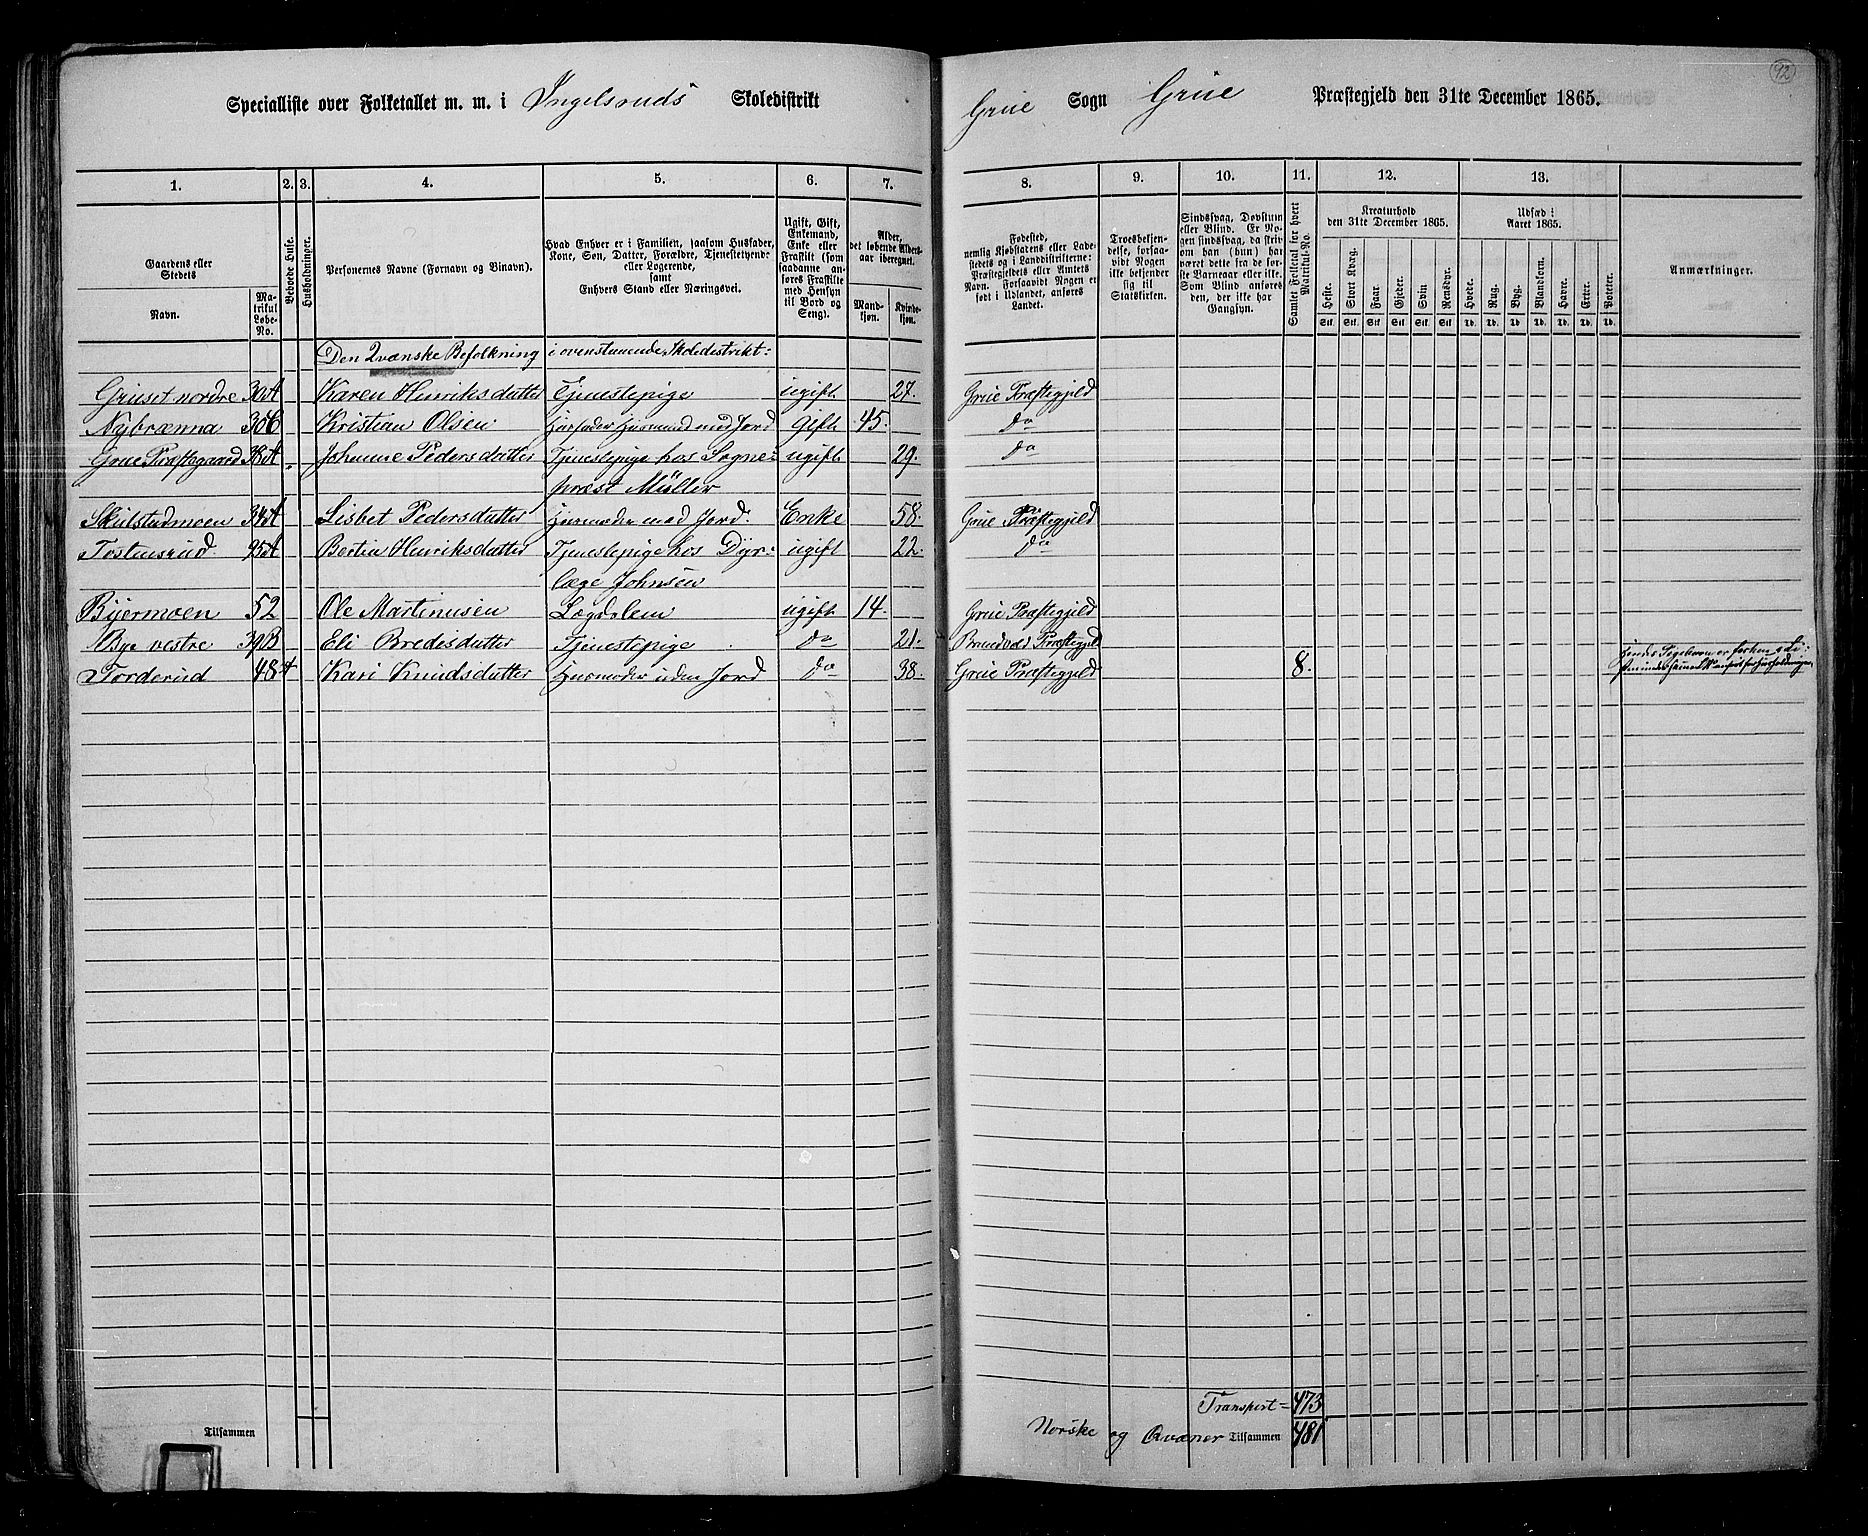 92
Specialliste over Folketallet m. m. i Ingelsruds Skoledistrikt Grue Sogn Grue Præstegjeld den 31te December 1865.
1. 2. 3. 4. 5. 6. 7. 8. 9. 10. 11. 12. 13.
Gaardens eller Stedets
Navn.
Matrikul Løbe-No.
Beboede Huse.
Husholdninger.
Personernes Navne (Fornavn og Binavn).
Hvad Enhver er i Familien, saasom Husfader, Kone, Søn, Datter, Forældre, Tjenestetyende eller Logerende, samt Enhvers Stand eller Næringsvei.
Ugift, Gift, Enkemand, Enke eller Fraskilt (som saadanne anføres Fraskilte med Hensyn til Bord og Seng).
Alder, det løbende Alders-aar iberegnet.
Mand-kjøn. Kvinde-kjøn.
Fødested, nemlig Kjøbstadens eller Ladestedets og i Landdistrikterne: Præstegjeldets eller Amtets Navn. Forsaavidt Nogen er født i Udlandet, anføres Landet.
Troesbekjendelse, forsaavidt Nogen ikke bekjender sig til Statskirken.
Sindssvag, Døvstum eller Blind. Er Nogen sindssvag, da skrives om han (hun) har været dette fra de første Barneaar eller ikke. Som Blind anføres den, der ikke har Gangsyn.
Samlet Folketal for hvert Matrikul-No.
Kreaturhold den 31te December 1865.
Heste. Stort Kvæg. Faar. Gjeder. Svin. Rensdyr.
Stk. Stk. Stk. Stk. Stk. Stk.
Udsæd i Aaret 1865.
Hvede. Rug. Byg. Blandkorn. Havre. Erter. Poteter.
Td. Td. Td. Td. Td. Td. Td.
Anmærkninger.
Den Qvænske Befolkning i ovenstaaende Skoledistrikt:
Gruset nordre 30A Karen Henriksdatter Tjenestepige ugift 27. Grue Præstegjeld
Nybrænna 30C Kristian Olsen Husfader Husmand med Jord Gift 45. do
Grue Præstegaard 38A Johanne Pedersdatter Tjenestepige hos Sogne= ugift 29. do
præst Müller
Skulstadmoen 34A Lisbet Pedersdatter Husmoder med Jord. Enke 58. Grue Præstegjeld
Tostensrud 45A Bertia Henriksdatter Tjenestepige hos Dyr= ugift 22. do
læge Johnsen
Byermoen 52 Ole Martinusen Lægdslem ugift 14. Grue Præstegjeld
Bye vestre 39B Eli Bredisdatter Tjenestepige do 21. Brandvold Præstegjeld
Torderud 48 Kari Knudsdatter Husmoder uden Jord do 38. Grue Præstegjeld 8.
Transport = 473
Norske og Qvæner Tilsammen 481
Tilsammen